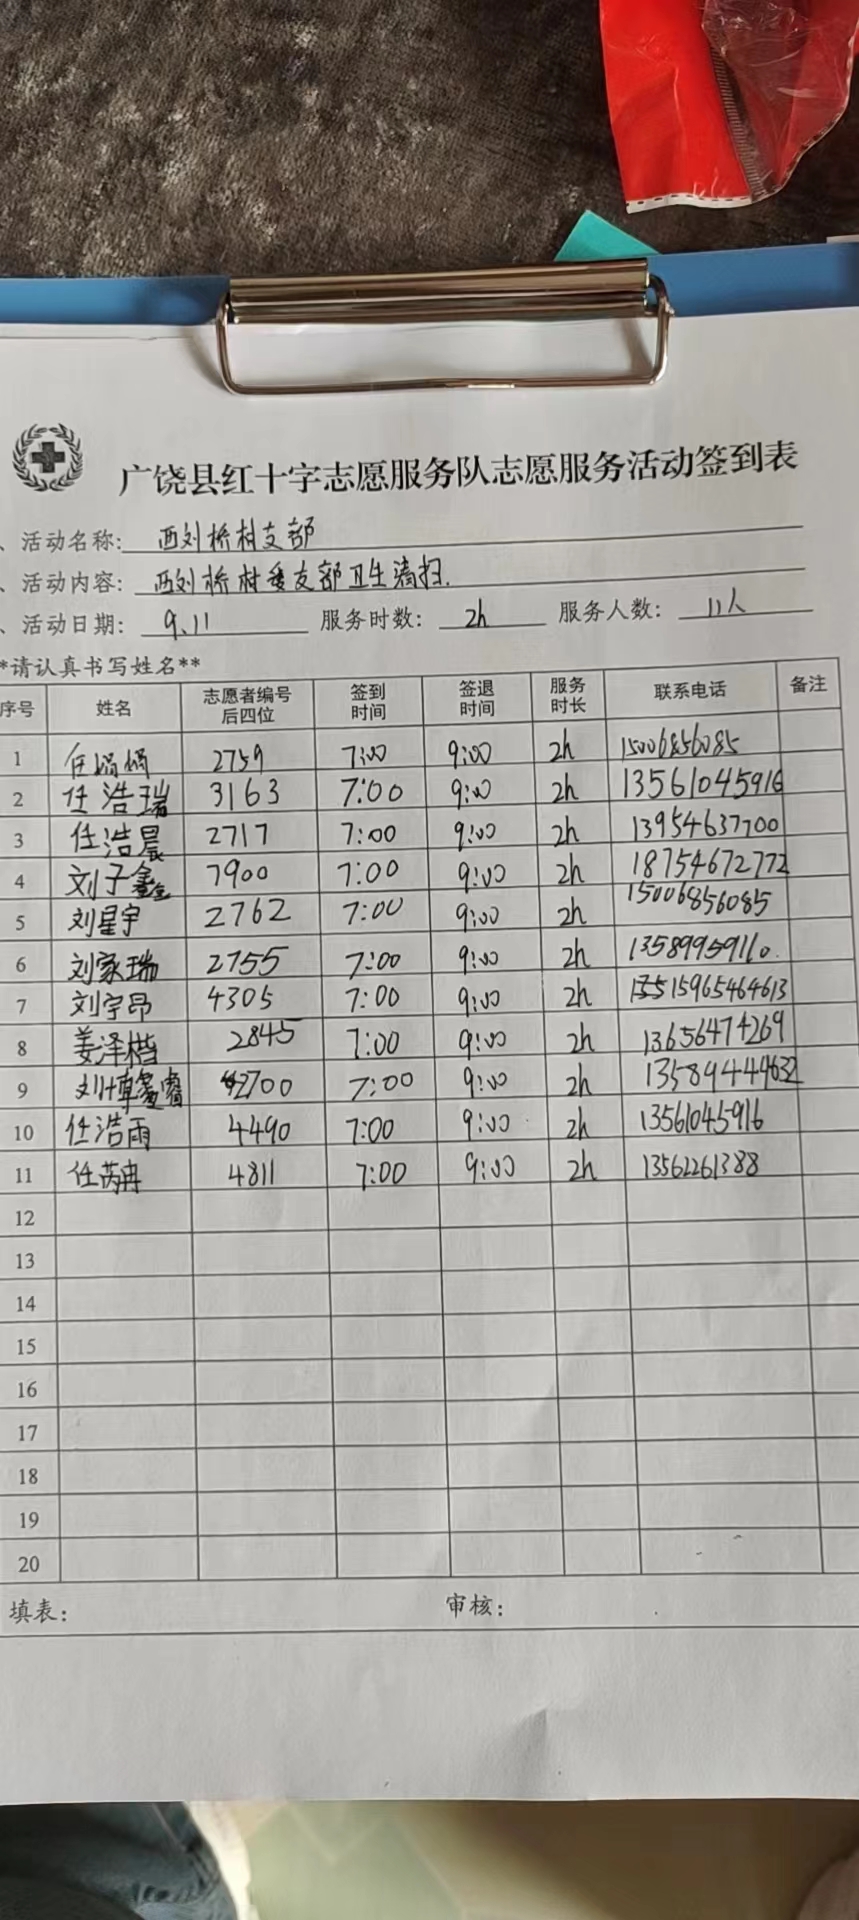 广饶县红十字志愿服务队志愿服务活动签到表
、活动名称: 西刘桥村支部
、活动内容: 西刘桥村委支部卫生清扫.
、活动日期: 9.11 服务时数: 2h 服务人数: 11人
*请认真书写姓名**
序号 姓名 志愿者编号后四位 签到时间 签退时间 服务时长 联系电话 备注
1 任娟娟 2759 7:00 9:00 2h 15006856085
2 任浩瑞 3163 7:00 9:00 2h 13561045916
3 任浩晨 2717 7:00 9:00 2h 13954637700
4 刘子鑫 7900 7:00 9:00 2h 18754672772
5 刘星宇 2762 7:00 9:00 2h 15006856085
6 刘家瑞 2755 7:00 9:00 2h 13589959110.
7 刘宇昂 4305 7:00 9:00 2h 15965464613
8 姜泽楷 2845 7:00 9:00 2h 13656474269
9 刘 睿 2700 7:00 9:00 2h 13589444632
10 任浩雨 4490 7:00 9:00 2h 13561045916
11 任芮冉 4811 7:00 9:00 2h 13562261388
12
13
14
15
16
17
18
19
20
填表: 审核: